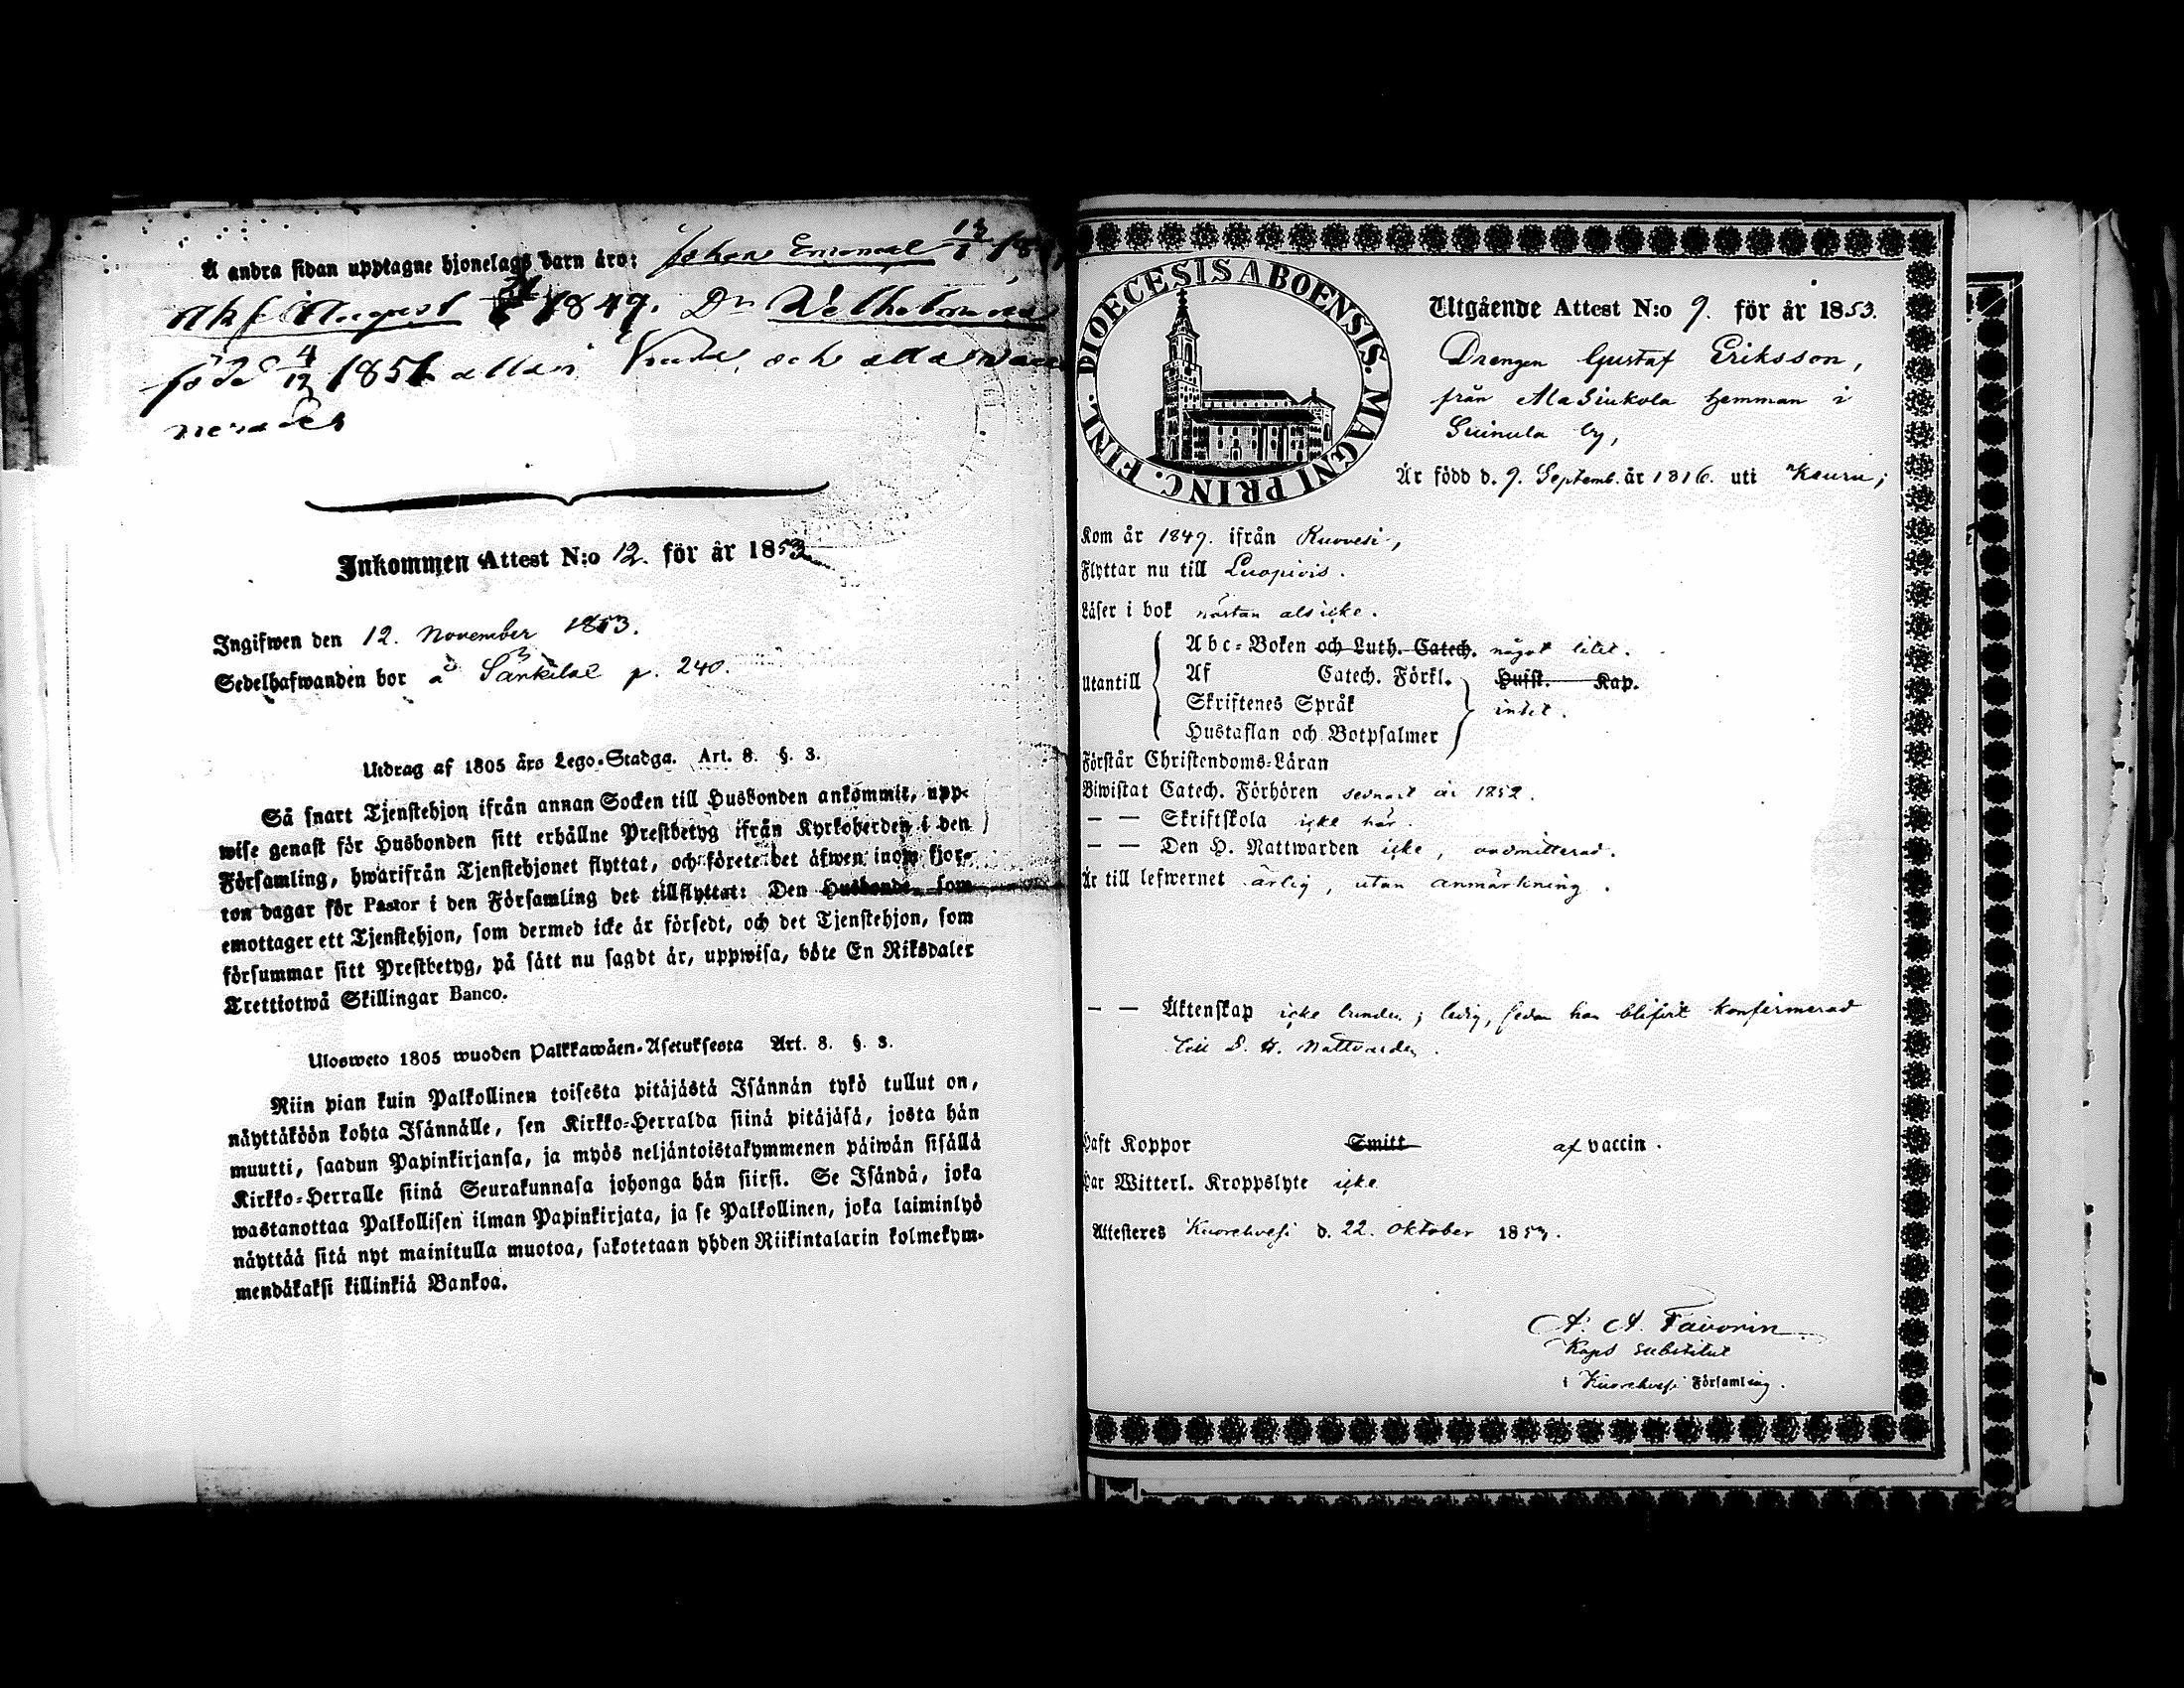 Å andra sidan upptagne hjonelags barn äro: Johan Emanuel 13/1 18
August 1849. Dr Wilhelmina
född 4/12 1851 alla och alla
nerade
Inkommen Attest N:o 12. för år 1853
Ingifwen den 12. November 1853.
Sedelhafwanden bor å Särkilax p. 240.
Utdrag af 1805 års Lego-Stadga. Art. 8. §. 3.
Så snart Tjenstehjon ifrån annan Socken till Husbonden ankommit, upp-
wise genast för Husbonden sitt erhållne Prestbetyg ifrån Kyrkoherden i den
Församling, hwarifrån Tjenstehjonet flyttat, och förete det äfwen inom fjor-
ton dagar för Pastor i den Församling det tillflyttat: Den Husbonde som
emottager ett Tjenstehjon, som dermed icke är försedt, och det Tjenstehjon, som
försummar sitt Prestbetyg, på sätt nu sagdt är, uppwisa, böte En Riksdaler
Trettiotwå Skillingar Banco.
Ulosweto 1805 wuoden Palkkawäen-Asetuksesta Art. 8. §. 3.
Niin pian kuin Palkollinen toisesta pitäjästä Isännän tykö tullut on,
näyttäköön kohta Isännälle, sen Kirkko-Herralda siinä pitäjäsä, josta hän
muutti, saadun Papinkirjansa, ja myös neljäntoistakymmenen päiwän sisällä
Kirkko-Herralle siinä Seurakunnasa johonga hän siirsi. Se Isändä, joka
wastanottaa Palkollisen ilman Papinkirjata, ja se Palkollinen, joka laiminlyö
näyttää sitä nyt mainitulla muotoa, sakotetaan yhden Riikintalarin kolmekym-
mendäkaksi killinkiä Bankoa.
DIOECESIS ABOENSIS. MAGNI PRINC. FINL.
Utgående Attest N:o 9. för år 1853.
Drengen Gustaf Eriksson,
från AlaSiukola hemman i
Suinula by,
Är född d. 9. Septemb. år 1816. uti Keuru;
Kom år 1849. ifrån Ruovesi,
Flyttar nu till Luopiois.
Läser i bok nästan als icke.
Abc-Boken och Luth. Catech. något litet.
Utantill Af Catech. Förkl. Hufst. Kap.
Skriftenes Språk intet.
Hustaflan och Botpsalmer
Förstår Christendoms-Läran
Biwistat Catech. Förhören sednast år 1852.
— — Skriftskola icke här.
— — Den H. Nattwarden icke, oadmitterad.
Är till lefwernet ärlig, utan anmärkning.
— — Äktenskap icke bunden; ledig, sedan han blifvit konfirmerad
till D. H. Nattvarden.
Haft Koppor Smitt af vaccin.
Har Witterl. Kroppslyte icke
Attesteras Kuorehvesi d. 22. Oktober 1853.
A. A. Favorin.
Kaps Substitut
i Kuorehvesi Församling.